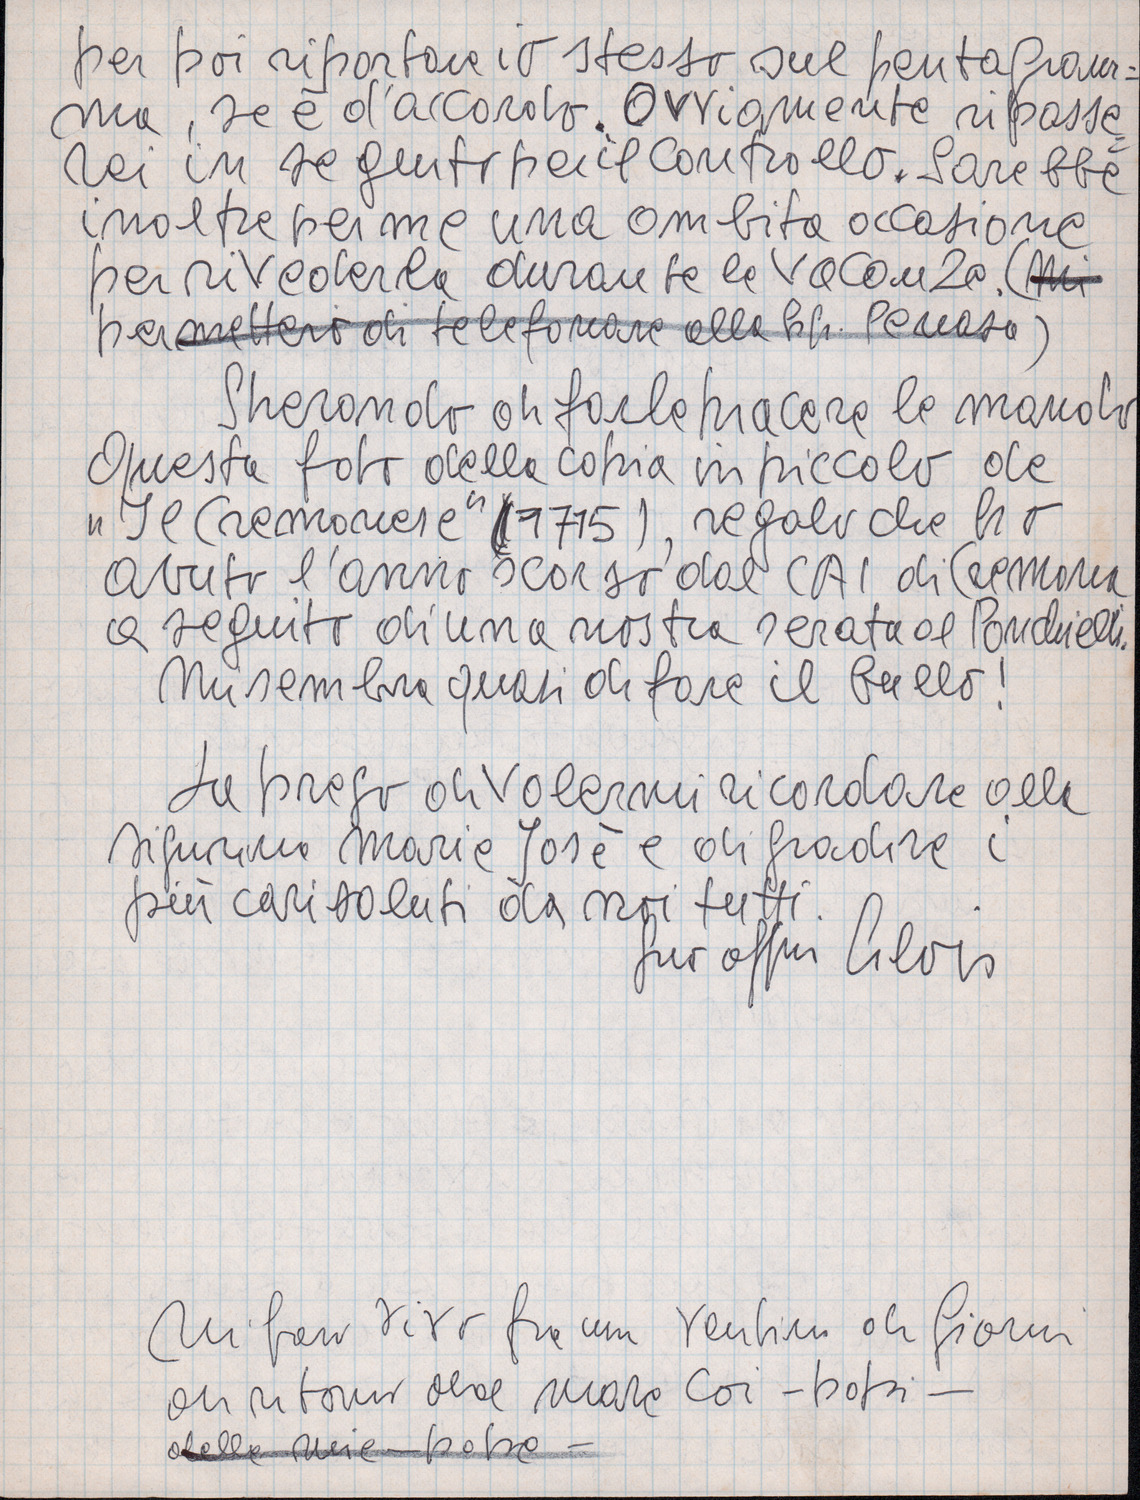 per poi riportare io stesso sul pentagram=
ma, se è d'accordo. Ovviamente ripasse=
rei in seguito per il controllo. Sarebbe
inoltre per me una ambita occasione
per rivederla durante le vacanze. (Mi
permetterò di telefonare alla
Sperando di farle piacere le mando
Questa foto della copia in piccolo de
"Il Cremonese" (1715), regalo che ho
avuto l'anno scorso dal CAI di Cremona
a seguito di una nostra serata al Ponchielli.
Mi sembra quasi di fare il bullo!
La prego di volermi ricordare alla
signora Marie José e di gradire i
più cari saluti da noi tutti.
Suo aff.mo
Mi farò vivo fra una ventina di giorni
di ritorno dal mare coi - popi -
delle mie - pope -